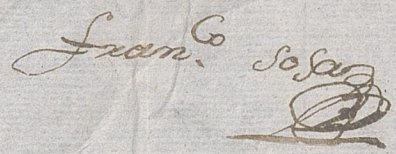 Fran.co Sosa